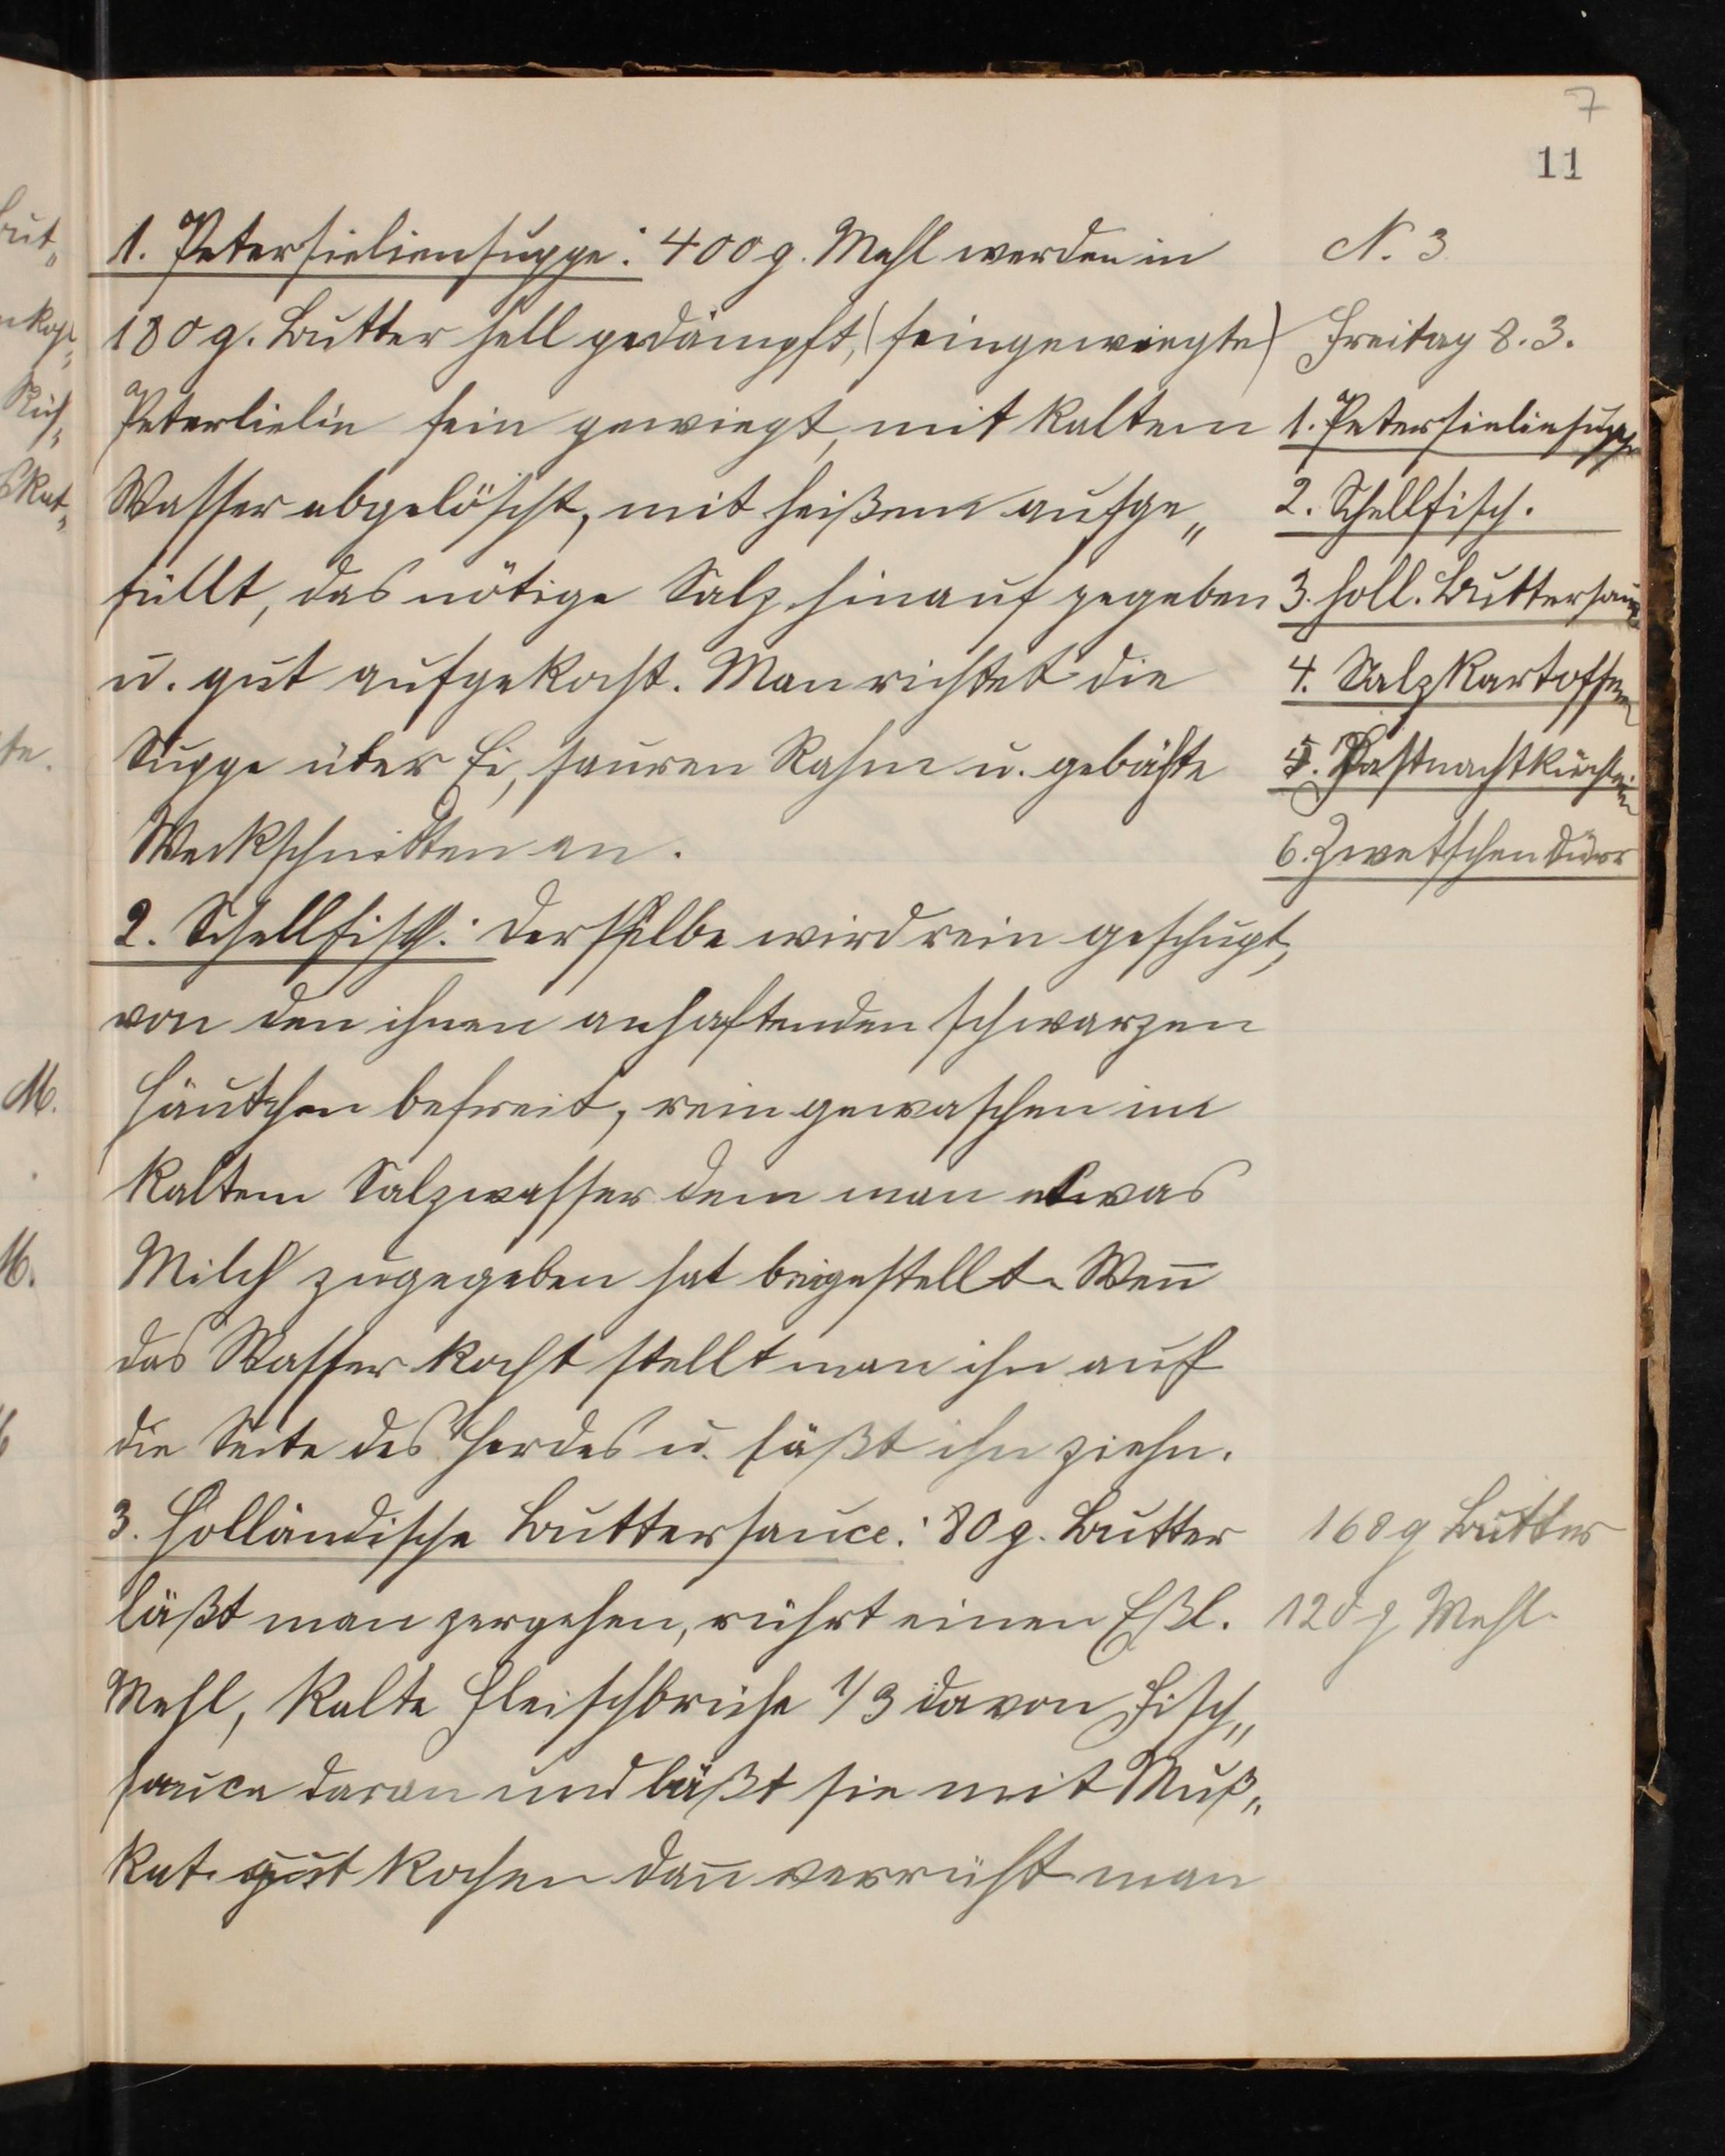 7
11
1. Petersieliensuppe: 400 g. Mehl werden in
180 g. Butter hell gedämpft, (feingewiegte)
Peterlielin fein gewiegt, mit kaltem
Wasser abgelöscht, mit heißem aufge„
füllt, das nötige Salz hinauf gegeben
u. gut aufgekocht. Man richtet die
Suppe über Ei, sauren Rahm u. gebähte
Weckschnitten an.
2. Schellfisch: Derselbe wird rein geschupt,
von den ihnen anhaftenden schwarzen
Häutchen befreit, rein gewaschen im
kaltem Salzwasser dem man etwas
Milch zugegeben hat beigestellt. Weñ
das Wasser kocht stellt man ihn auf
die Seite des Herdes u. läßt ihn ziehn.
3. Holländische Buttersauce: 80 g. Butter
läßt man zergehen, rührt einen Eßl.
Mehl, kalte Fleischbrühe 1/3 davon Fisch„
sauce daran und läßt sie mit Muß„
kat. gut kochen dañ verrührt man
N. 3
Freitag 8. 3.
1. Petersieliensuppe
2. Schellfisch.
3. holl. Buttersauce
4. Salzkartoffeln
5. Fastnachtküchlein
6. Zwetschen dürr
160 g Butter
120 g Mehl.
but„
Küch„
Skat„
te.
M.
M.